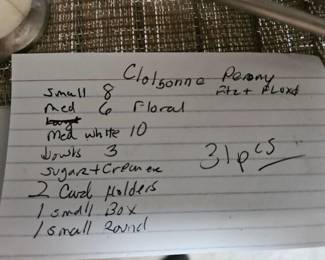 Cloisonne Peony
Small 8 Etc + Floxs
Med 6 Floral
Med white 10
bowls 3
31 pcs
Sugar + Creamer
2 Card Holders
1 small Box
1 small Round